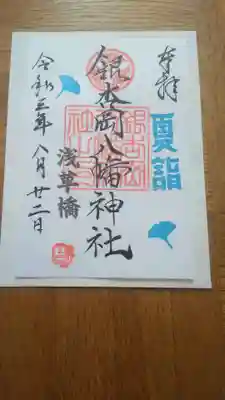 奉拝
夏詣
銀杏岡八幡神社
浅草橋
令和三年八月廿二日